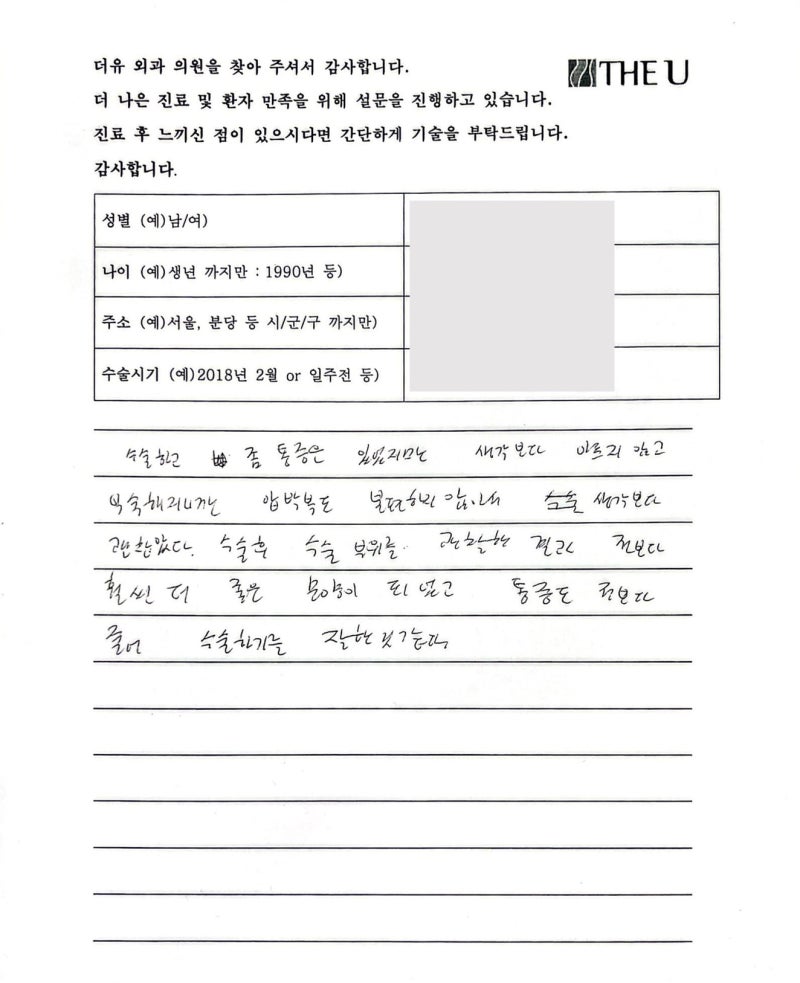 더유 외과 의원을 찾아 주셔서 감사합니다.
THE U
더 나은 진료 및 환자 만족을 위해 설문을 진행하고 있습니다.
진료 후 느끼신 점이 있으시다면 간단하게 기술을 부탁드립니다.
감사합니다.
성별 (예)남/여)
나이 (예)생년 까지만 : 1990년 등)
주소 (예)서울, 분당 등 시/군/구 까지만)
수술시기 (예)2018년 2월 or 일주전 등)
수술하고 좀 통증은 있었지만 생각보다 아프지 않고
익숙해지니깐 압박복도 불편하지 않아서 생각보다
괜찮았다. 수술후 수술 부위를 관찰한 결과 전보다
훨씬 더 좋은 모양이 되었고 통증도 전보다
줄어 수술하기를 잘한것 같다.